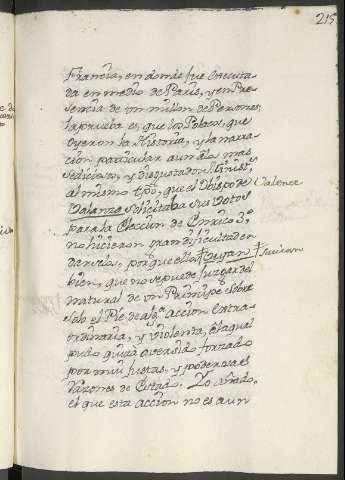 215
Francia, en donde fue executa-
da en medio de Paris, y en Pre-
sencia de un millon de Personas;
la prueba es, que los Polacos, que
oyeron la Historia, y la narra-
cion particular aun a los mas
sediciosos, y disgustados
al mismo tpo, que el Obispo de Valence
Valanze solicitaba sus Votos
para la Eleccion de Enrico 3º
no hicieron grande dificultad en
bien, que no se puede juzgar del
natural de un Principe sobre
solo el Pie de algª accion extra-
ordinaria, y violenta, à la qual
pudo quiza aver sido forzado
por mui justas, y poderosas
Razones de Estado. Yo añado,
el que esta accion no es aun